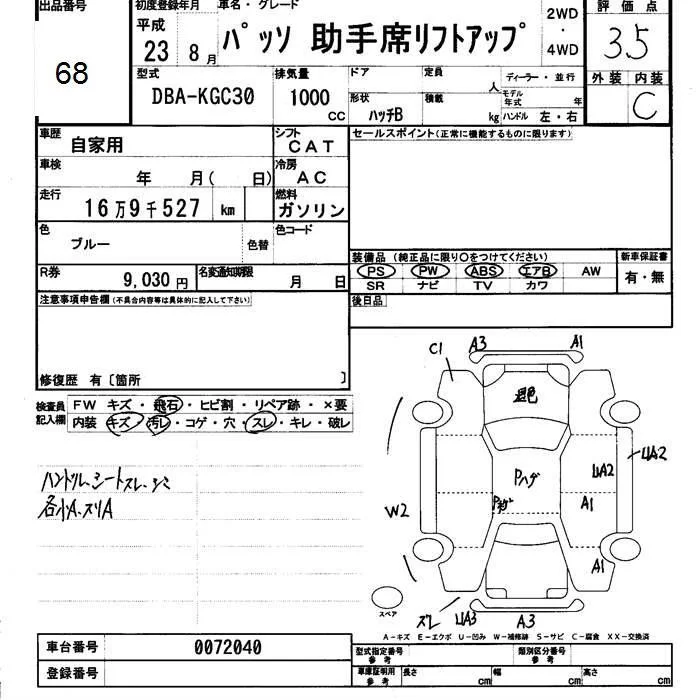 出品番号 初度登録年月 車名・グレード 評価点
68 平成 23 8月 パッソ 助手席リフトアップ 2WD・4WD 3.5
型式 排気量 ドア 定員 人 ディーラー・並行 外装 内装
DBA-KGC30 1000 CC 形状 ハッチB 積載 kg モデル年式 年 ハンドル 左・右 C
車歴 自家用 シフト CAT セールスポイント(正常に機能するものに限ります)
車検 年 月( 日) 冷房 AC
走行 16万9千527 km 燃料 ガソリン
色 ブルー 色替 色コード
装備品(純正品に限り○をつけてください) 新車保証書
R券 9,030円 名変通知期限 月 日 PS PW ABS エアB AW 有・無
SR ナビ TV カワ
注意事項申告欄(不具合内容等は具体的に記入して下さい) 後日品
修復歴 有〔箇所 〕
検査員記入欄 FW キズ・飛石・ヒビ割・リペア跡・×要
内装 キズ・汚レ・コゲ・穴・スレ・キレ・破レ
ハンドル、シートスレ、シミ
各小A、スリA
C1 A3 A1
退色
Pハゲ UA2 UA2
W2 A1
A1
スペア スレ UA3 A3
A-キズ E-エクボ U-凹み W-補修跡 S-サビ C-腐食 XX-交換済
車台番号 0072040 型式指定番号 参考 類別区分番号 参考
登録番号 車庫証明用 参考 長さ cm 幅 cm 高さ cm